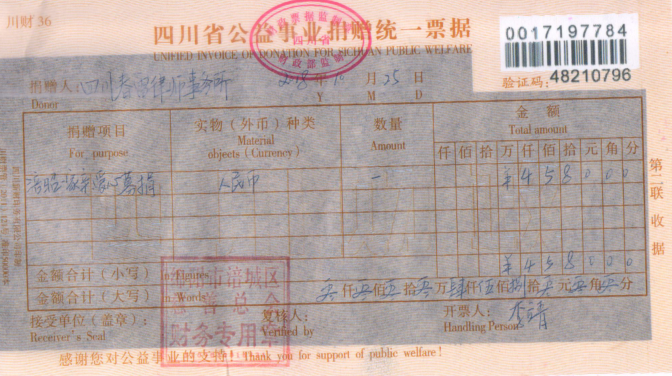 川财 36
四川省公益事业捐赠统一票据
UNIFIED INVOICE OF DONATION FOR SICHUAN PUBLIC WELFARE
0017197784
验证码: 48210796
捐赠人: 四川 律师事务所 年 10 月 25 日
Donor Y M D
捐赠项目 实物（外币）种类 数量 金额
For purpose Material objects (Currency) Amount Total amount
仟 佰 拾 万 仟 佰 拾 元 角 分
人民币 一 ¥ 4 5 8 0 0 0
金额合计（小写） In Figures ¥ 4 5 8 0 0 0
金额合计（大写） In Words 仟 佰 拾 万肆仟伍佰捌拾 元 角 分
接受单位（盖章）: 复核人: 开票人: 李靖
Receiver's Seal Verified by Handling Person
感谢您对公益事业的支持! Thank you for support of public welfare!
第二联 收据
四川省
财政部监制
市涪城区
慈善总会
财务专用章